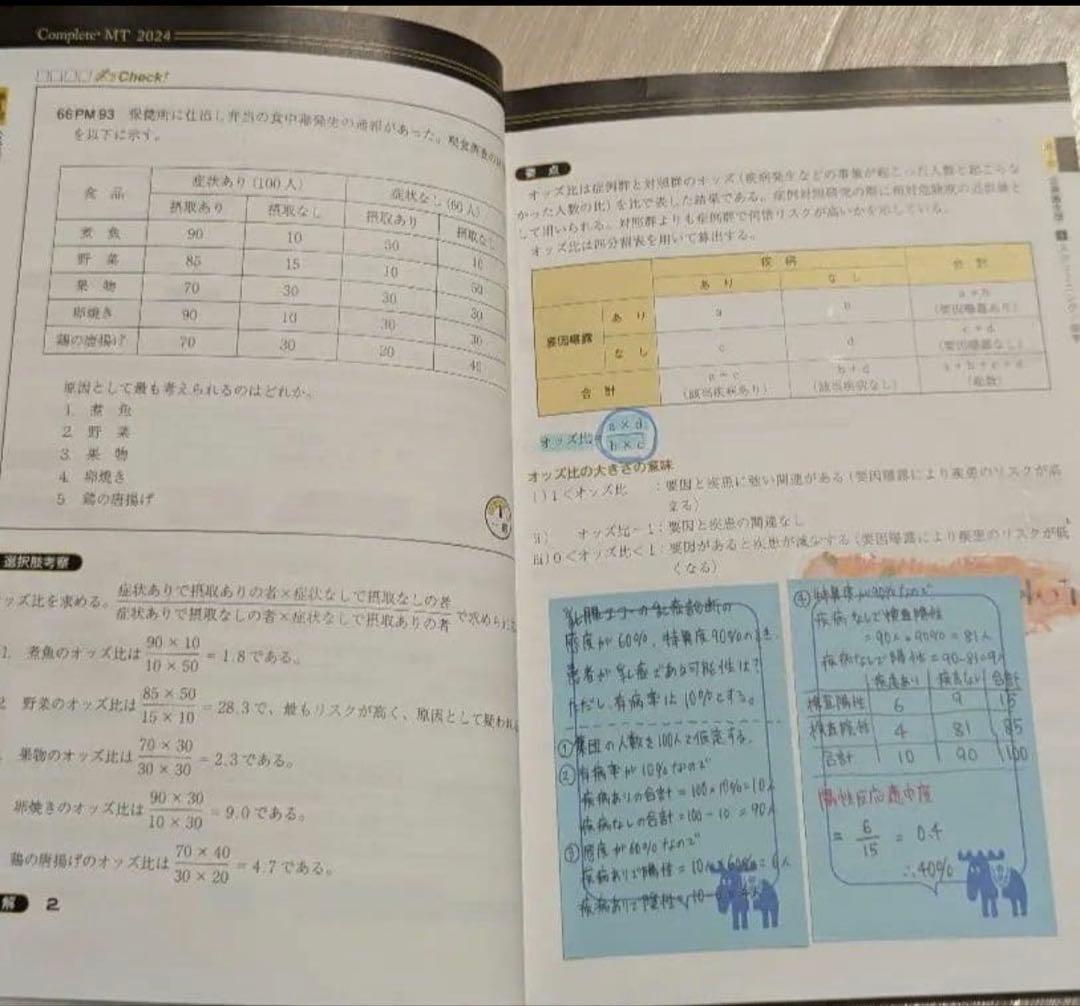 Complete+ MT 2024
Check!
66 PM 93 保健所に仕出し弁当の食中毒発生の通報があった。喫食調査の
を以下に示す。
食品 症状あり(100人) 症状なし(60人)
摂取あり 摂取なし 摂取あり 摂取なし
煮魚 90 10 50 10
野菜 85 15 10 50
果物 70 30 30 30
卵焼き 90 10 30 30
鶏の唐揚げ 70 30 20 40
原因として最も考えられるのはどれか。
1. 煮魚
2. 野菜
3. 果物
4. 卵焼き
5. 鶏の唐揚げ
選択肢考察
ッズ比を求める。 症状ありで摂取ありの者×症状なしで摂取なしの者
症状ありで摂取なしの者×症状なしで摂取ありの者 で求められ
1. 煮魚のオッズ比は 90×10 / 10×50 = 1.8である。
2 野菜のオッズ比は 85×50 / 15×10 = 28.3で、最もリスクが高く、原因として疑われ
果物のオッズ比は 70×30 / 30×30 = 2.3である。
卵焼きのオッズ比は 90×30 / 10×30 = 9.0である。
鶏の唐揚げのオッズ比は 70×40 / 30×20 = 4.7である。
解 2
要点
オッズ比は症例群と対照群のオッズ(疾病発生などの事象が起こった人数と起こらな
かった人数の比)を比で表した結果である。症例対照研究の際に相対危険度の近似値と
して用いられる。対照群よりも症例群で何倍リスクが高いかを示している。
オッズ比は四分割表を用いて算出する。
疾病 合計
あり なし
要因曝露 あり a b a+b
(要因曝露あり)
なし c d c+d
(要因曝露なし)
合計 a+c b+d a+b+c+d
(該当疾病あり) (該当疾病なし) (総数)
オッズ比= a×d / b×c
オッズ比の大きさの意味
i)1<オッズ比 :要因と疾患に強い関連がある(要因曝露により疾患のリスクが高
まる)
ii) オッズ比=1:要因と疾患の関連なし
iii)0<オッズ比<1:要因があると疾患が減少する(要因曝露により疾患のリスクが低
くなる)
乳腺エコーの乳癌診断の
感度が60%、特異度90%のとき、
患者が乳癌である可能性は?
ただし、有病率は10%とする。
①集団の人数を100人と仮定する。
②有病率が10%なので
疾病ありの合計=100×10%=10人
疾病なしの合計=100-10=90人
③感度が60%なので
疾病ありで陽性=10×60%=6人
疾病ありで陰性=10-6=4人
④特異度が90%なので
疾病なしで検査陰性
=90人×90%=81人
疾病なしで陽性=90-81=9人
疾病あり 疾病なし 合計
検査陽性 6 9 15
検査陰性 4 81 85
合計 10 90 100
陽性反応適中度
= 6/15 = 0.4
∴40%